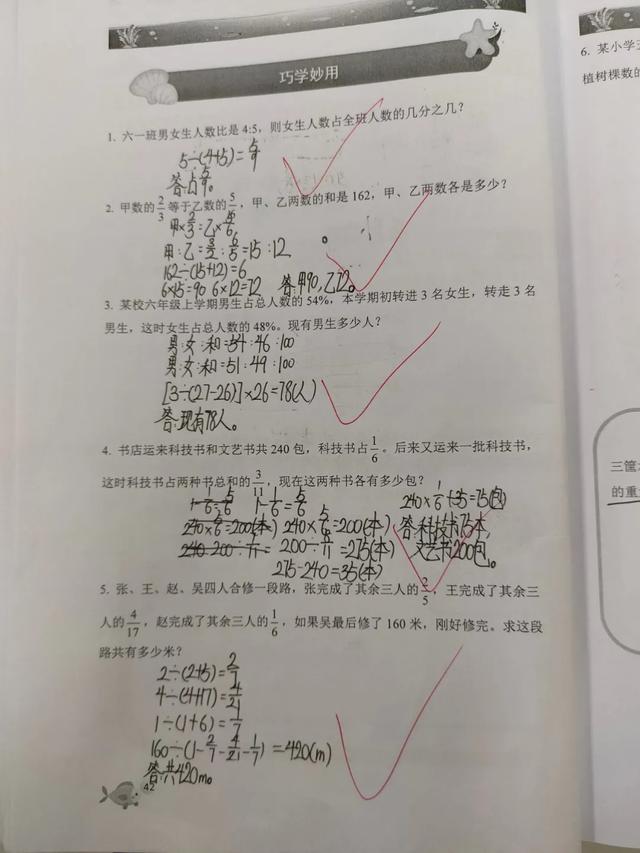 巧学妙用
1. 六一班男女生人数比是 4:5，则女生人数占全班人数的几分之几？
5÷(4+5)=5/9
答:占5/9。
2. 甲数的2/3等于乙数的5/6，甲、乙两数的和是 162，甲、乙两数各是多少？
甲×2/3=乙×5/6
甲:乙=3/2:6/5=15:12
162÷(15+12)=6
6×15=90 6×12=72 答:甲90,乙72。
3. 某校六年级上学期男生占总人数的 54%，本学期初转进 3 名女生，转走 3 名
男生，这时女生占总人数的 48%。现有男生多少人？
男:女:和=54:46:100
男:女:和=51:49:100
[3÷(27-26)]×26=78(人)
答:现有78人。
4. 书店运来科技书和文艺书共 240 包，科技书占1/6。后来又运来一批科技书，
这时科技书占两种书总和的3/11，现在这两种书各有多少包？
1-1/6=5/6 1-1/6=5/6 240×1/6+35=75(包)
240×5/6=200(本) 240×5/6=200(本) 答:科技书75本,
240-200÷8/11 200÷8/11=275(本) 文艺书200包。
275-240=35(本)
5. 张、王、赵、吴四人合修一段路，张完成了其余三人的2/5，王完成了其余三
人的4/17，赵完成了其余三人的1/6，如果吴最后修了 160 米，刚好修完。求这段
路共有多少米？
2÷(2+5)=2/7
4÷(4+17)=4/21
1÷(1+6)=1/7
160÷(1-2/7-4/21-1/7)=420(m)
答:共420m。
42
6. 某小学五
植树棵数的
三筐
的重量